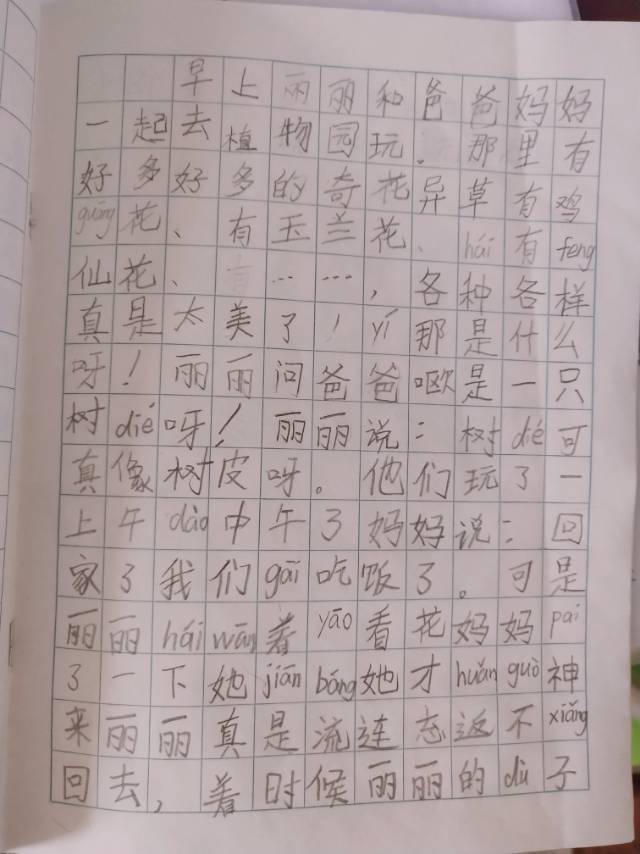 早上丽丽和爸爸妈妈
一起去植物园玩。那里有
好多好多的奇花异草有鸡
guāng花、有玉兰花、hái有feng
仙花、有……，各种各样
真是太美了！yí那是什么
呀！丽丽问爸爸呕是一只
树dié呀！丽丽说：树dié可
真像树皮呀。他们玩了一
上午dào中午了妈妈说：回
家了我们gāi吃饭了。可是
丽丽hái wān着yāo看花妈妈pai
了一下她jiān bǎng她才huǎn guò神
来丽丽真是流连忘返不xiǎng
回去，着时候丽丽的dù子